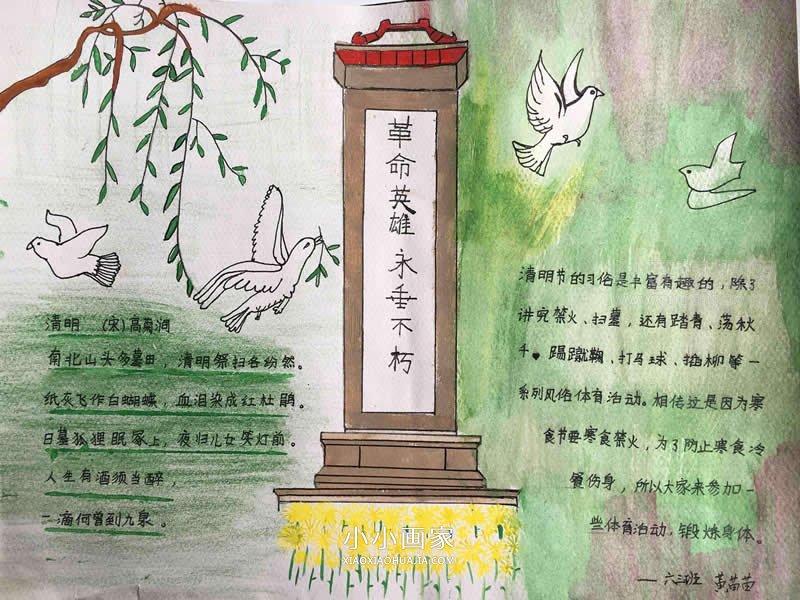 革命英雄永垂不朽
清明 (宋)高菊涧
南北山头多墓田,清明祭扫各纷然。
纸灰飞作白蝴蝶,血泪染成红杜鹃。
日墓狐狸眠冢上,夜归儿女笑灯前。
人生有酒须当醉,
一滴何曾到九泉。
清明节的习俗是丰富有趣的,除了
讲究禁火、扫墓,还有踏青、荡秋
千、踢蹴鞠、打马球、插柳等一
系列风俗体育活动。相传这是因为寒
食节要寒食禁火,为了防止寒食冷
餐伤身,所以大家来参加一
些体育活动,锻炼身体。
——六三班 黄苗苗
小小画家
XIAOXIAOHUAJIA.COM